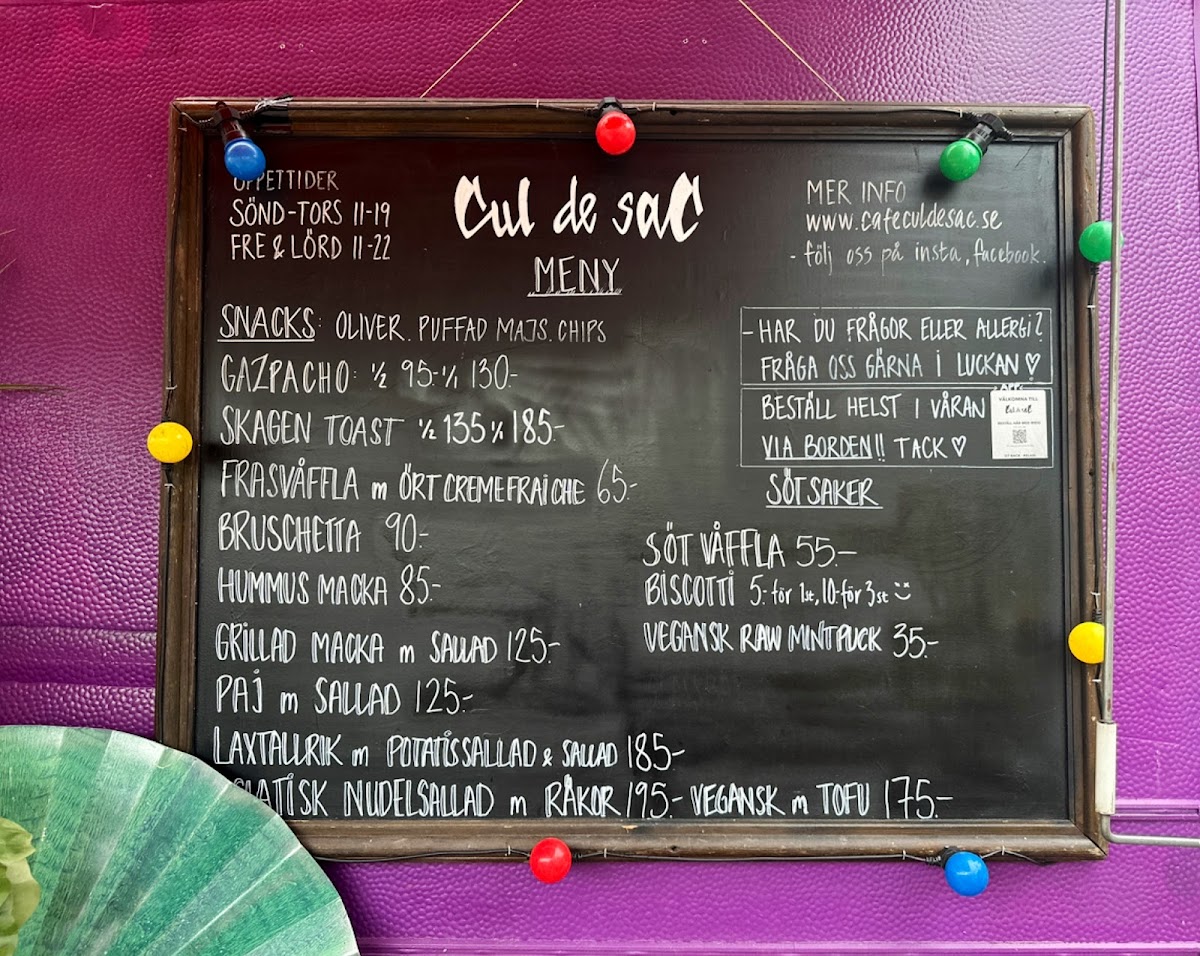 ÖPPETTIDER
SÖND-TORS 11-19
FRE & LÖRD 11-22
Cul de saC
MENY
MER INFO
www.cafeculdesac.se
- följ oss på insta, facebook.
SNACKS: OLIVER. PUFFAD MAJS. CHIPS
GAZPACHO: 1/2 95:- 1/1 130:-
SKAGEN TOAST 1/2 135 1/1 185:-
FRASVÅFFLA m ÖRTCREMEFRAICHE 65:-
BRUSCHETTA 90:-
HUMMUS MACKA 85:-
GRILLAD MACKA m SALLAD 125:-
PAJ m SALLAD 125:-
LAXTALLRIK m POTATISSALLAD & SALLAD 185:-
NUDELSALLAD m RÅKOR 195:- VEGANSK m TOFU 175:-
- HAR DU FRÅGOR ELLER ALLERGI?
FRÅGA OSS GÄRNA I LUCKAN ♡
BESTÄLL HELST I VÅRAN APP
VIA BORDEN!! TACK ♡
VÄLKOMNA TILL
Cul de saC
SÖTSAKER
SÖT VÅFFLA 55:-
BISCOTTI 5:- för 1st, 10:- för 3st :)
VEGANSK RAW MINTPUCK 35:-